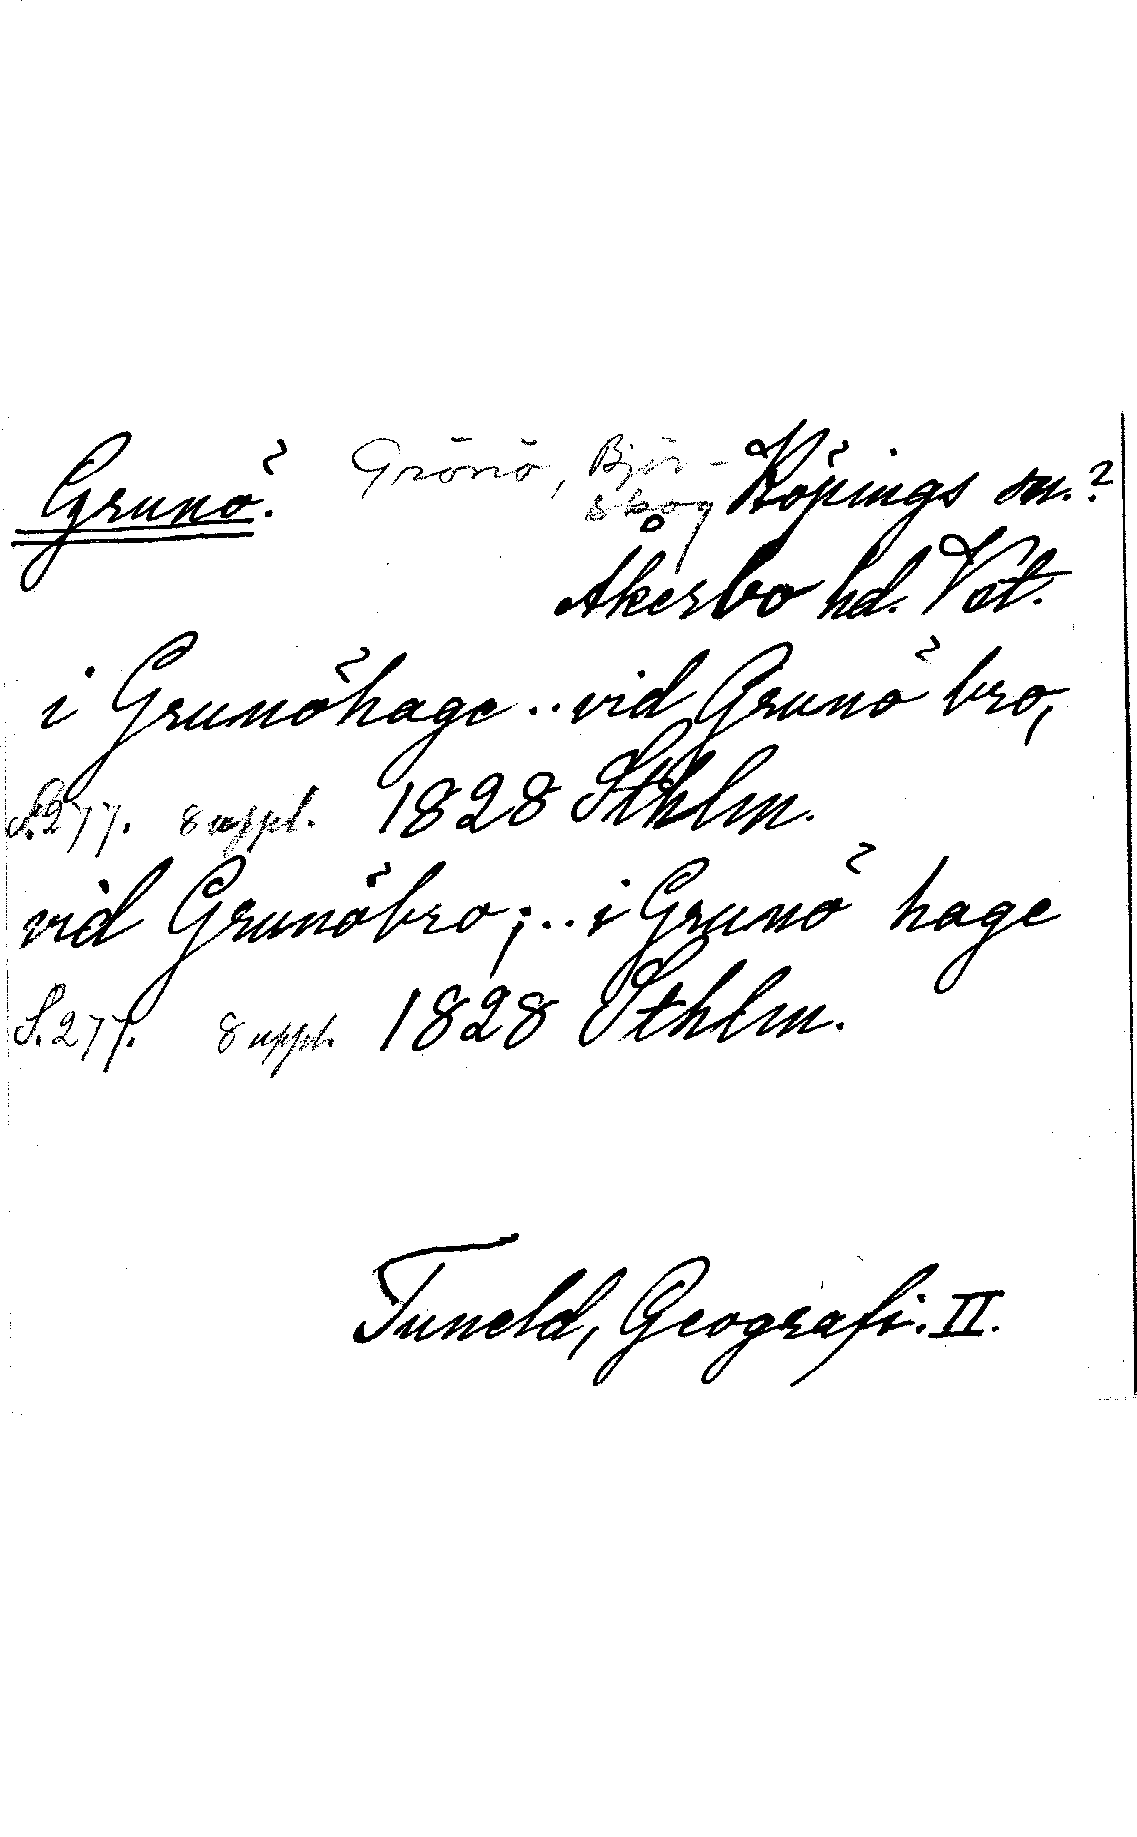 Grunö. Grönö, Björ- Köpings sn.?
skog
Åkerbo hd. Vstl.
i Grunöhage .. vid Grunö bro,
S. 277. 8 uppl. 1828 Sthlm.
vid Grunöbro; .. i Grunö hage
S. 277. 8 uppl. 1828 Sthlm.
Tuneld, Geografi. II.